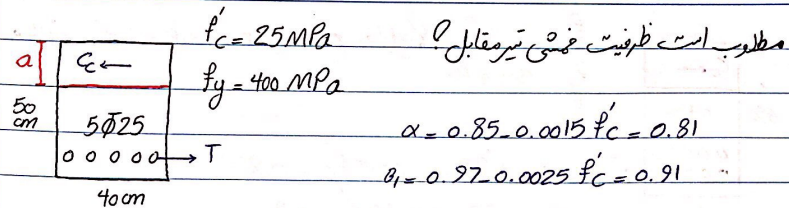 مطلوب است ظرفیت خمشی تیر مقابل؟
f'c = 25 MPa
fy = 400 MPa
a
Cc ←
50 cm
5Φ25
T
40 cm
α = 0.85 - 0.0015 f'c = 0.81
β1 = 0.97 - 0.0025 f'c = 0.91